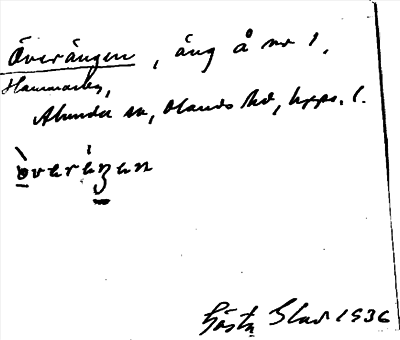 Överängen, äng å nr 1,
Hammarby,
Alunda sn, Olands hd, Upps. l.
överäŋen
Gösta Blad 1936